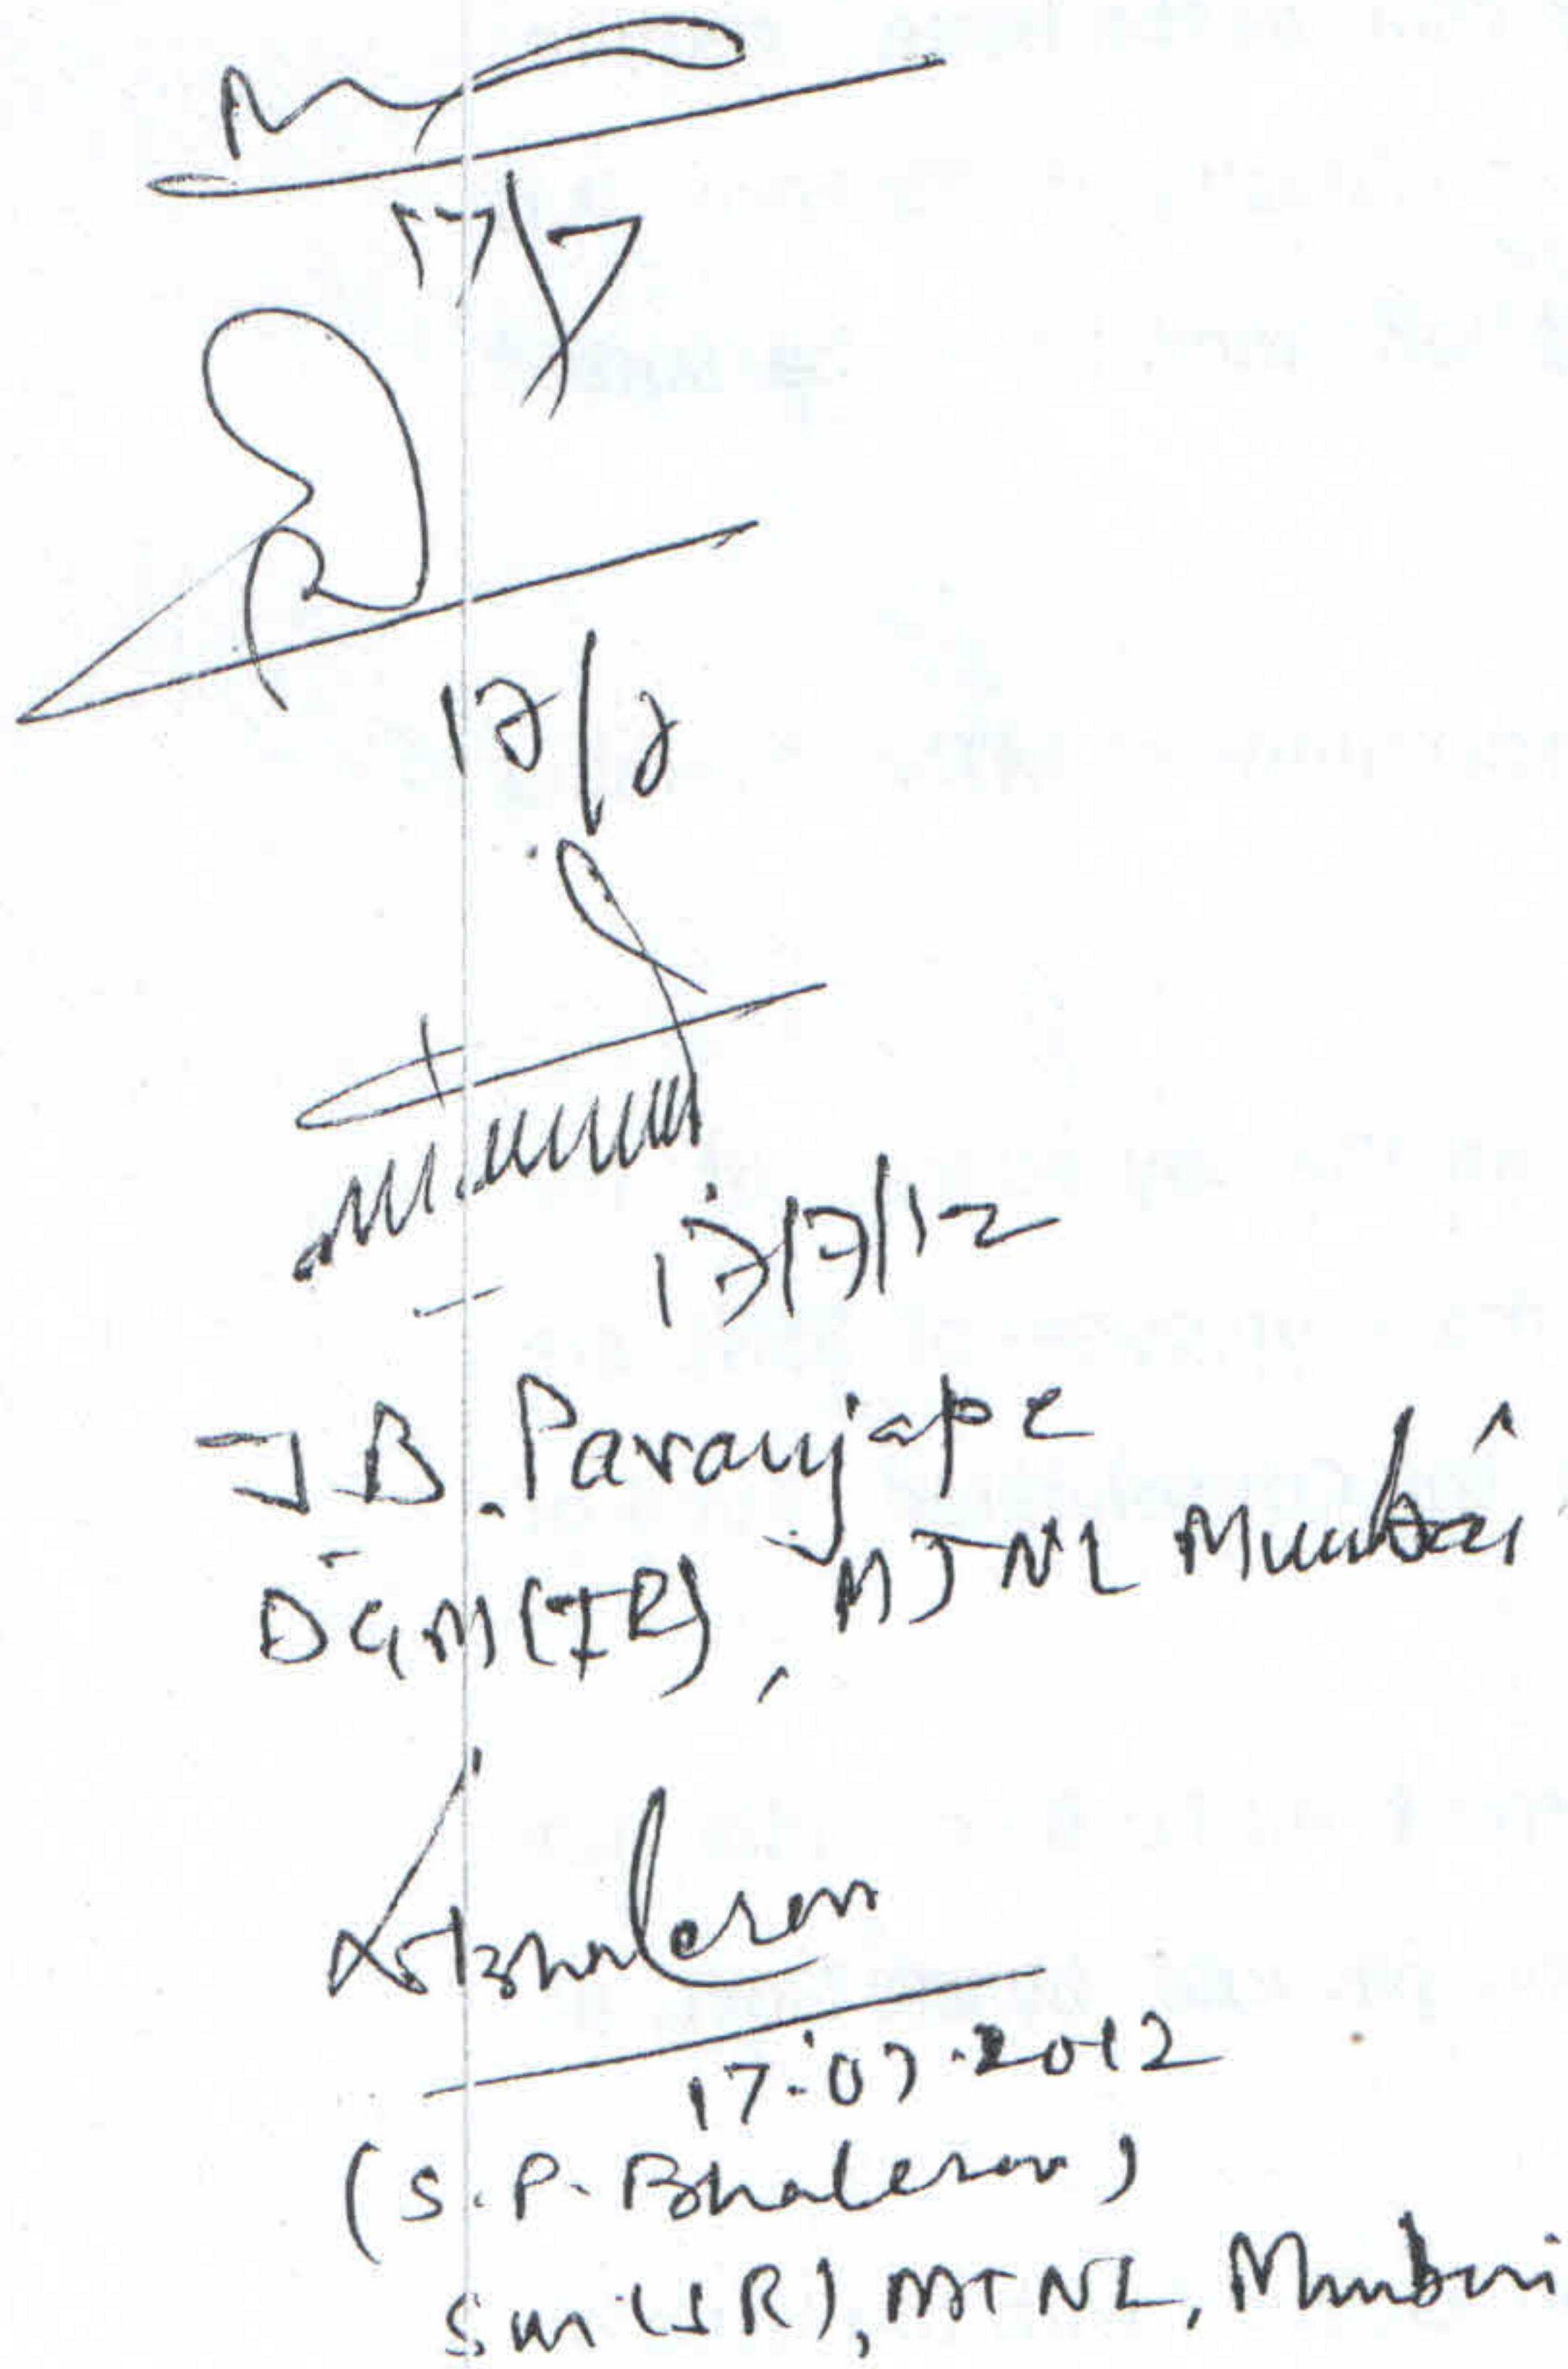 17/7
17/7
17/7/12
J B. Paranjape
DGM(IR), MTNL Mumbai
SPBhalerao
17.07.2012
(S.P. Bhalerao)
SM (IR), MTNL, Mumbai